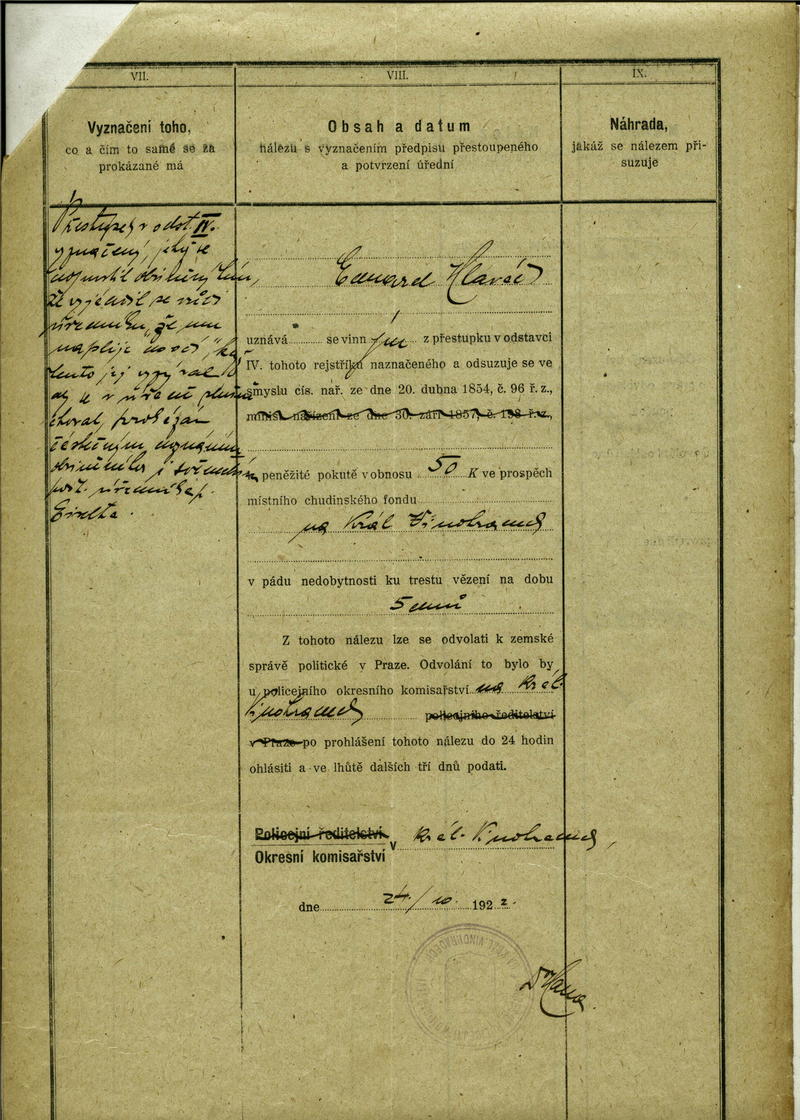 VII.
Vyznačení toho,
co a čím to samé se za
prokázané má
Přestupek v odst IV.
vyznačený, jehož se
dopustil obviněný tím,
že vyjádřil se vůči
"že mu
naplije do očí",
tento jej vyzýval
aby v úřadě
choval, prokázán
částečným doznáním
obviněného i
VIII.
Obsah a datum
nálezu s vyznačením předpisu přestoupeného
a potvrzení úřední
Eduard Hlaváč
uznává se vinn z přestupku v odstavci
IV. tohoto rejstříku naznačeného a odsuzuje se ve
smyslu cís. nař. ze dne 20. dubna 1854, č. 96 ř. z.,
minist. nařízení ze dne 30. září 1857, č. 198 ř. z.,
k peněžité pokutě v obnosu 50 K ve prospěch
místního chudinského fondu
na Král Vinohradech
v pádu nedobytnosti ku trestu vězení na dobu
5 dnů
Z tohoto nálezu lze se odvolati k zemské
správě politické v Praze. Odvolání to bylo by
u policejního okresního komisařství na Král.
Vinohradech policejního ředitelství
v Praze po prohlášení tohoto nálezu do 24 hodin
ohlásiti a ve lhůtě dalších tří dnů podati.
Policejní ředitelství
v Král. Vinohradech,
Okresní komisařství
dne 24/10. 1922.
IX.
Náhrada,
jakáž se nálezem při-
suzuje